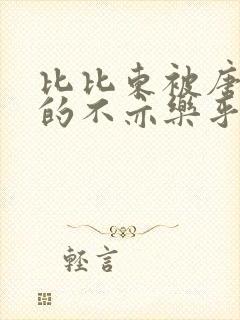 比比东被唐
的不亦樂乎
輕言